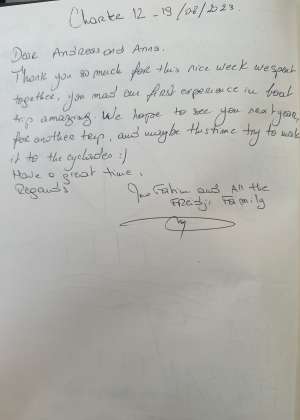 Charter 12 - 19/08/2023.
Dear Andreas and Anna.
Thank you so much for this nice week we spent
together, you mad our first experience in boat
trip amazing. We hope to see you next year,
for another trip, and maybe this time try to make
it to the cyclades :)
Have a great time.
Regards
Fatim and All the
Family